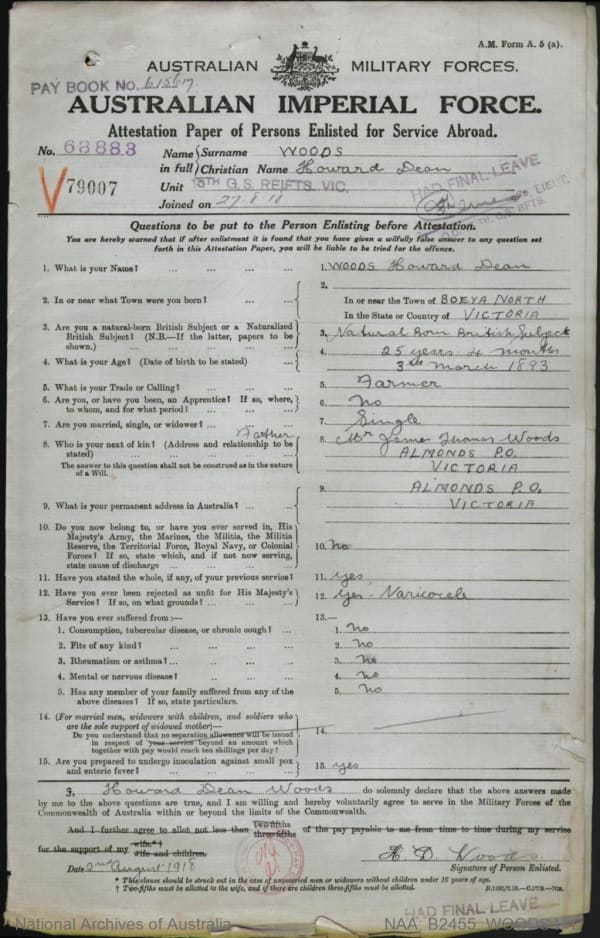 A.M. Form A. 5 (a).
AUSTRALIAN MILITARY FORCES.
PAY BOOK NO.
AUSTRALIAN IMPERIAL FORCE.
Attestation Paper of Persons Enlisted for Service Abroad.
No. 63883
Name in full { Surname WOODS
Christian Name Howard Dean
V 79007
Unit 15TH G.S. REIFTS. VIC.
HAD FINAL LEAVE
LIEUT,
Joined on
Questions to be put to the Person Enlisting before Attestation.
You are hereby warned that if after enlistment it is found that you have given a wilfully false answer to any question set
forth in this Attestation Paper, you will be liable to be tried for the offence.
1. What is your Name? ... ... ... ... 1. WOODS Howard Dean
2. In or near what Town were you born? ... ... 2. In or near the Town of BOEYA NORTH
In the State or Country of VICTORIA
3. Are you a natural-born British Subject or a Naturalized
British Subject? (N.B.—If the latter, papers to be
shown.) ... ... ... ... ... 3. Natural Born British Subject
4. What is your Age? (Date of birth to be stated) ... 4. 25 years 4 months
3rd March 1893
5. What is your Trade or Calling? ... ... ... 5. Farmer
6. Are you, or have you been, an Apprentice? If so, where,
to whom, and for what period? ... ... ... 6. No
7. Are you married, single, or widower? ... ... ... 7. Single
Father
8. Who is your next of kin? (Address and relationship to be
stated) ... ... ... ... ... 8. Mr James Thomas Woods
ALMONDS P.O.
VICTORIA
The answer to this question shall not be construed as in the nature
of a Will.
9. What is your permanent address in Australia? ... ... 9. ALMONDS P.O.
VICTORIA
10. Do you now belong to, or have you ever served in, His
Majesty's Army, the Marines, the Militia, the Militia
Reserve, the Territorial Force, Royal Navy, or Colonial
Forces? If so, state which, and if not now serving,
state cause of discharge ... ... ... ... 10. No
11. Have you stated the whole, if any, of your previous service? 11. yes
12. Have you ever been rejected as unfit for His Majesty's
Service? If so, on what grounds? ... ... ... 12. Yes - Varicocele
13. Have you ever suffered from :— 13.—
1. Consumption, tubercular disease, or chronic cough? ... 1. No
2. Fits of any kind? ... ... ... ... 2. No
3. Rheumatism or asthma? ... ... ... ... 3. No
4. Mental or nervous disease? ... ... ... 4. No
5. Has any member of your family suffered from any of the
above diseases? If so, state particulars. 5. No
14. (For married men, widowers with children, and soldiers who
are the sole support of widowed mother)—
Do you understand that no separation allowance will be issued
in respect of your service beyond an amount which
together with pay would reach ten shillings per day? 14.
15. Are you prepared to undergo inoculation against small pox
and enteric fever? ... ... ... ... 15. yes
I, Howard Dean Woods do solemnly declare that the above answers made
by me to the above questions are true, and I am willing and hereby voluntarily agree to serve in the Military Forces of the
Commonwealth of Australia within or beyond the limits of the Commonwealth.
And I further agree to allot not less than two-fifths three-fifths of the pay payable to me from time to time during my service
for the support of my wife.* † wife and children.
Date 2nd August 1918
H. D. Woods
Signature of Person Enlisted.
* This clause should be struck out in the case of unmarried men or widowers without children under 16 years of age.
† Two-fifths must be allotted to the wife, and if there are children three-fifths must be allotted.
HAD FINAL LEAVE
National Archives of Australia
NAA: B2455, WOODS